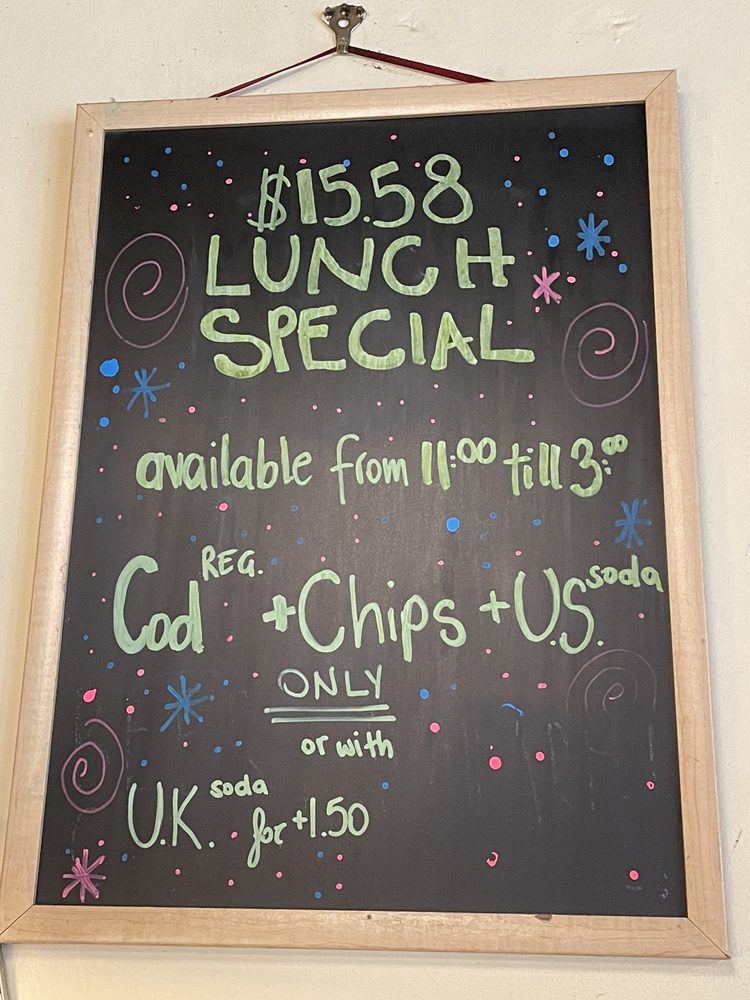 $15.58
LUNCH
SPECIAL
available from 11:00 till 3:00
Cod REG. + Chips + U.S. soda
ONLY
or with
U.K. soda for +1.50